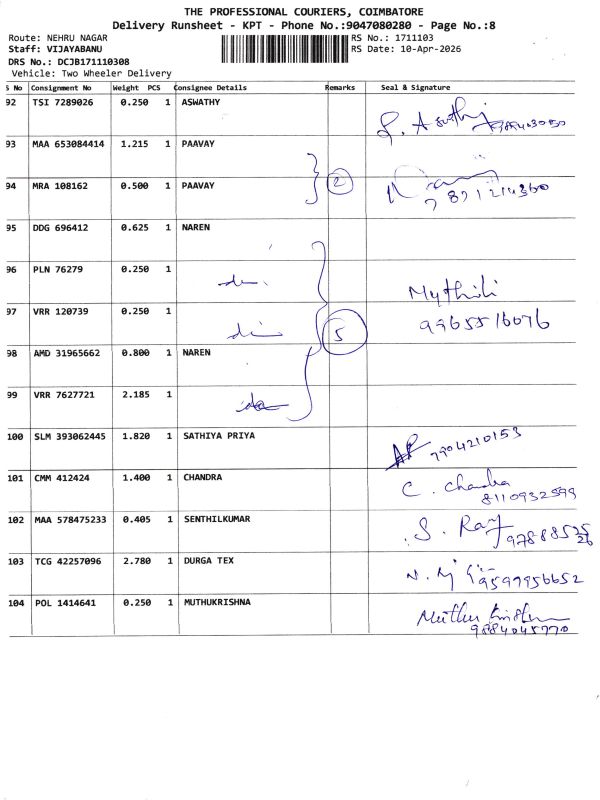 THE PROFESSIONAL COURIERS, COIMBATORE
Delivery Runsheet - KPT - Phone No.:9047080280 - Page No.:8
Route: NEHRU NAGAR
RS No.: 1711103
Staff: VIJAYABANU
RS Date: 10-Apr-2026
DRS No.: DCJB171110308
Vehicle: Two Wheeler Delivery
S No Consignment No Weight PCS Consignee Details Remarks Seal & Signature
92 TSI 7289026 0.250 1 ASWATHY
93 MAA 653084414 1.215 1 PAAVAY
94 MRA 108162 0.500 1 PAAVAY 2
95 DDG 696412 0.625 1 NAREN
96 PLN 76279 0.250 1 Mythili
97 VRR 120739 0.250 1 5 9965516076
98 AMD 31965662 0.800 1 NAREN
99 VRR 7627721 2.185 1
100 SLM 393062445 1.820 1 SATHIYA PRIYA 7904210153
101 CMM 412424 1.400 1 CHANDRA C. Chandra
8110932599
102 MAA 578475233 0.405 1 SENTHILKUMAR
103 TCG 42257096 2.780 1 DURGA TEX 9597956652
104 POL 1414641 0.250 1 MUTHUKRISHNA
9884045770